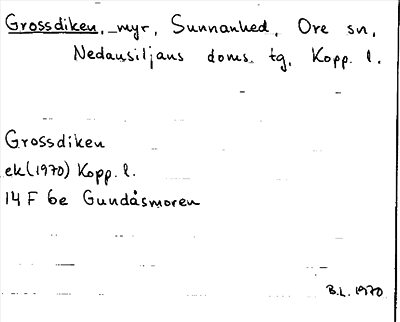 Grossdiken, myr, Sunnanhed, Ore sn,
Nedansiljans doms. tg, Kopp. l.
Grossdiken
ek(1970) Kopp. l.
14 F 6e Gundåsmoren
B.L. 1970